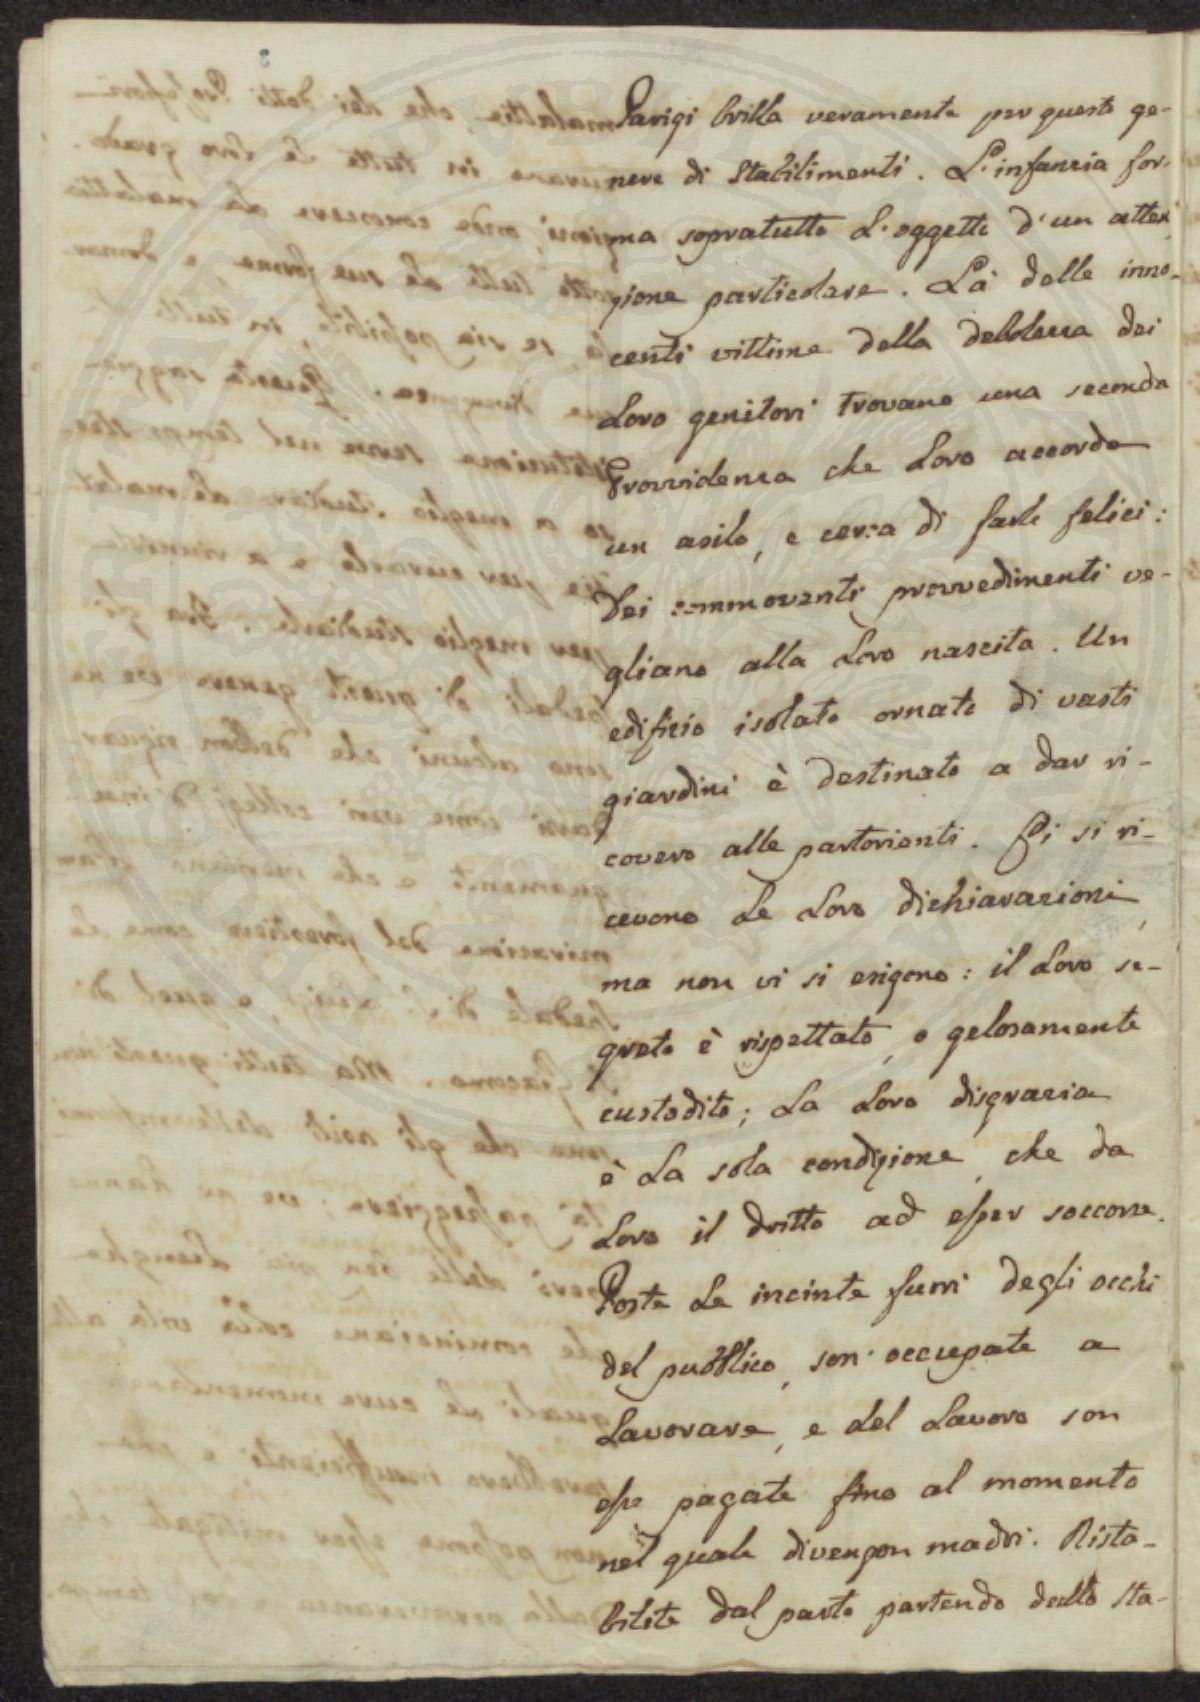 Parigi brilla veramente per questo ge-
nere di Stabilimenti. L'infanzia for-
ma sopratutto L'oggetto d'un atten-
zione particolare. Là delle inno-
centi vittime della debolezza dei
Loro genitori trovano una seconda
Provvidenza che Loro accorda
un asilo, e cerca di farle felici:
Dei commoventi provvedimenti ve-
gliano alla Loro nascita. Un
edifizio isolato ornato di vasti
giardini è destinato a dar ri-
covero alle partorienti. Ci si ri-
cevono Le Loro dichiarazioni,
ma non vi si esigono: il Loro se-
greto è rispettato, e gelosamente
custodito; La Loro disgrazia
è La sola condizione, che da
Loro il dritto ad esser soccorse.
Poste Le incinte fuori degli occhi
del pubblico, son' occupate a
Lavorare, e del Lavoro son
esse pagate fino al momento
nel quale divengon madri. Rista-
bilite dal parto partendo dallo Sta-